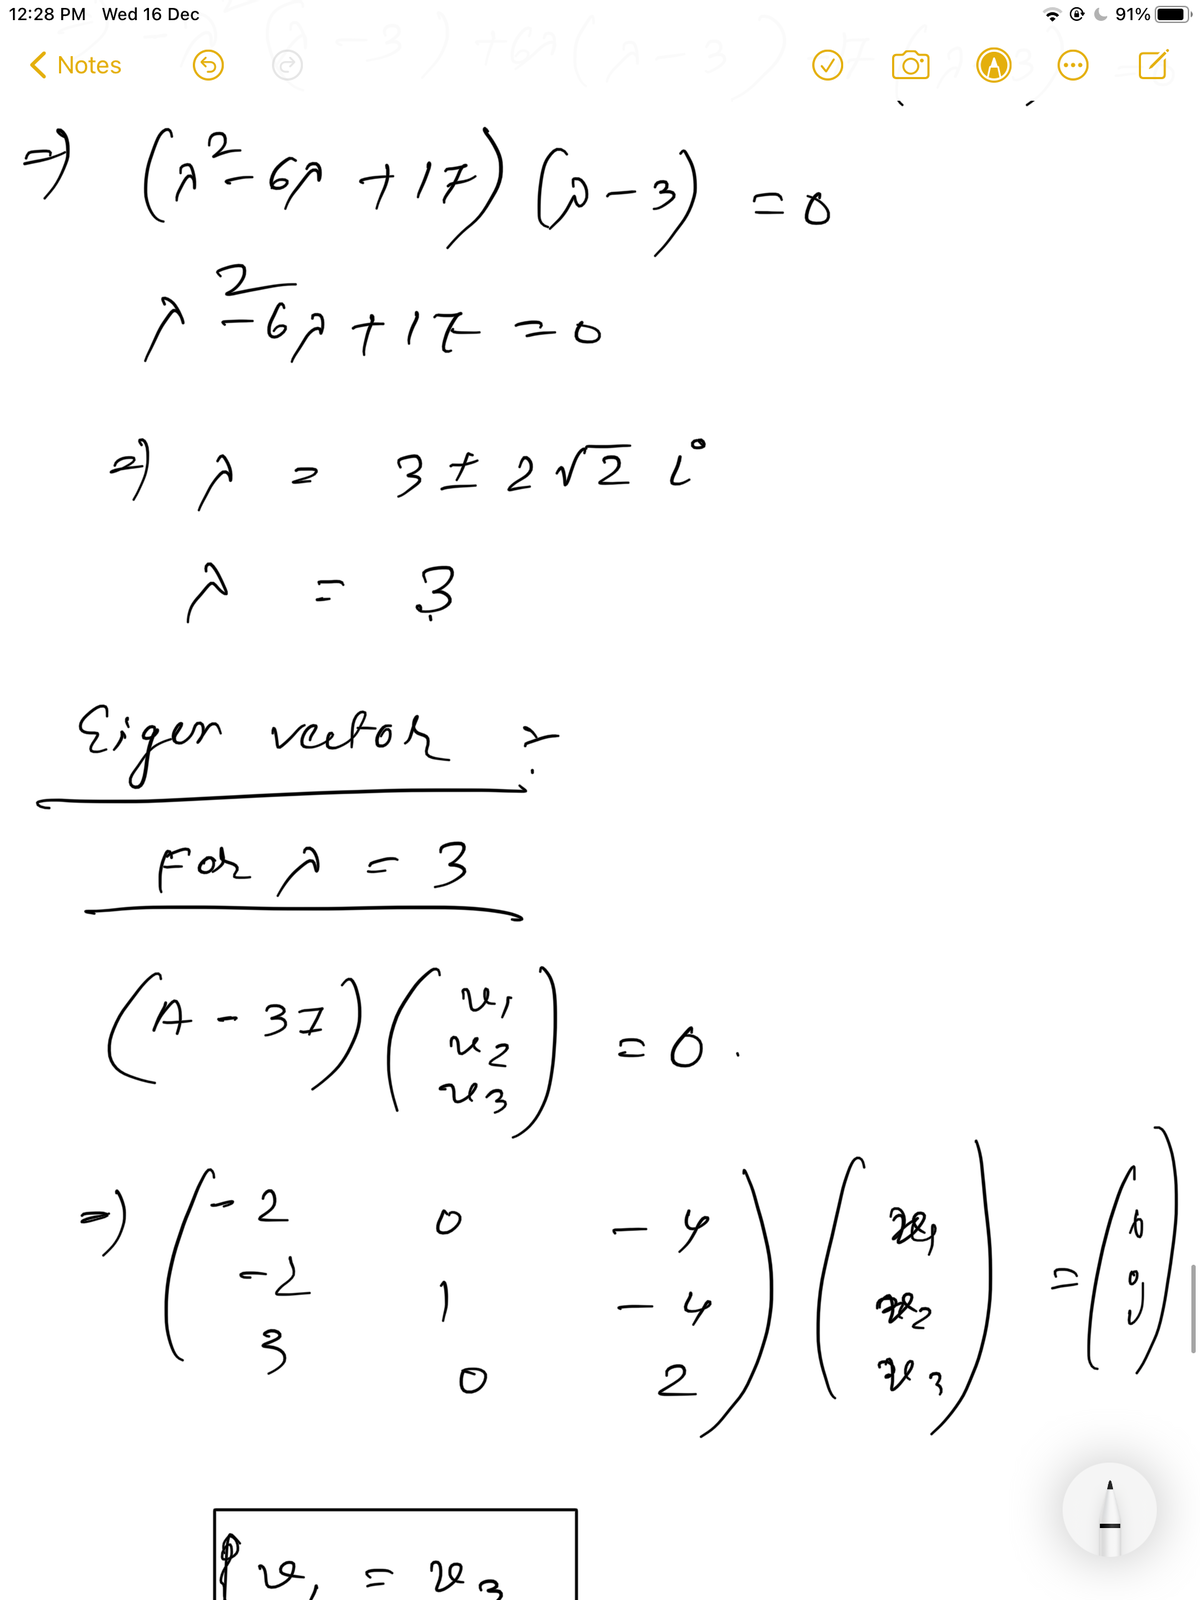 12:28 PM Wed 16 Dec 91%
Notes
⇒ (λ² - 6λ + 17) (λ - 3) = 0
λ² - 6λ + 17 = 0
⇒ λ = 3 ± 2√2 i
λ = 3
Eigen vector :-
For λ = 3
(A - 3I) (v1 v2 v3) = 0.
⇒ ( -2 0 -4 ) ( v1 ) = ( 0 )
-2 1 -4 v2 0
3 0 2 v3
v1 = v3